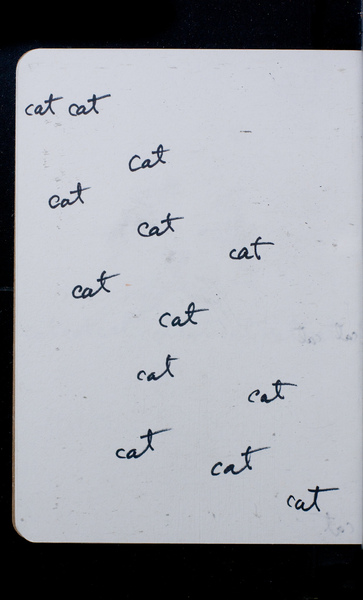 cat cat
cat
cat
cat
cat
cat
cat
cat
cat
cat
cat
cat